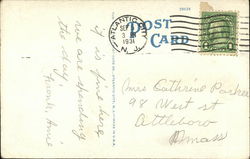 ATLANTIC CITY
SEP
3
1931
N.J.
POST
CARD
it is fine here
we are spending
the day.
Mrs Catherine Parker
98 West st
Attleboro
Mass